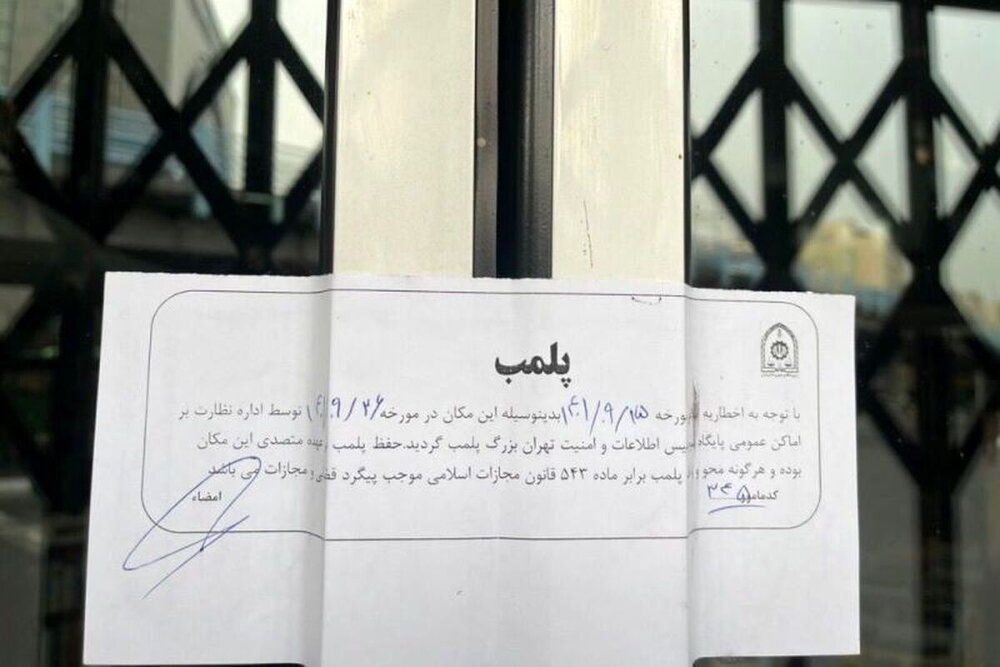 پلمب
با توجه به اخطاریه مورخه ۱۴۰۱/۹/۱۵ بدینوسیله این مکان در مورخه ۱۴۰۱/۹/۲۶ توسط اداره نظارت بر
اماکن عمومی پایگاه پلیس اطلاعات و امنیت تهران بزرگ پلمب گردید.حفظ پلمب بعهده متصدی این مکان
بوده و هرگونه محو پلمب برابر ماده ۵۴۳ قانون مجازات اسلامی موجب پیگرد و مجازات می باشد
کدمامور ۲۴۵
امضاء